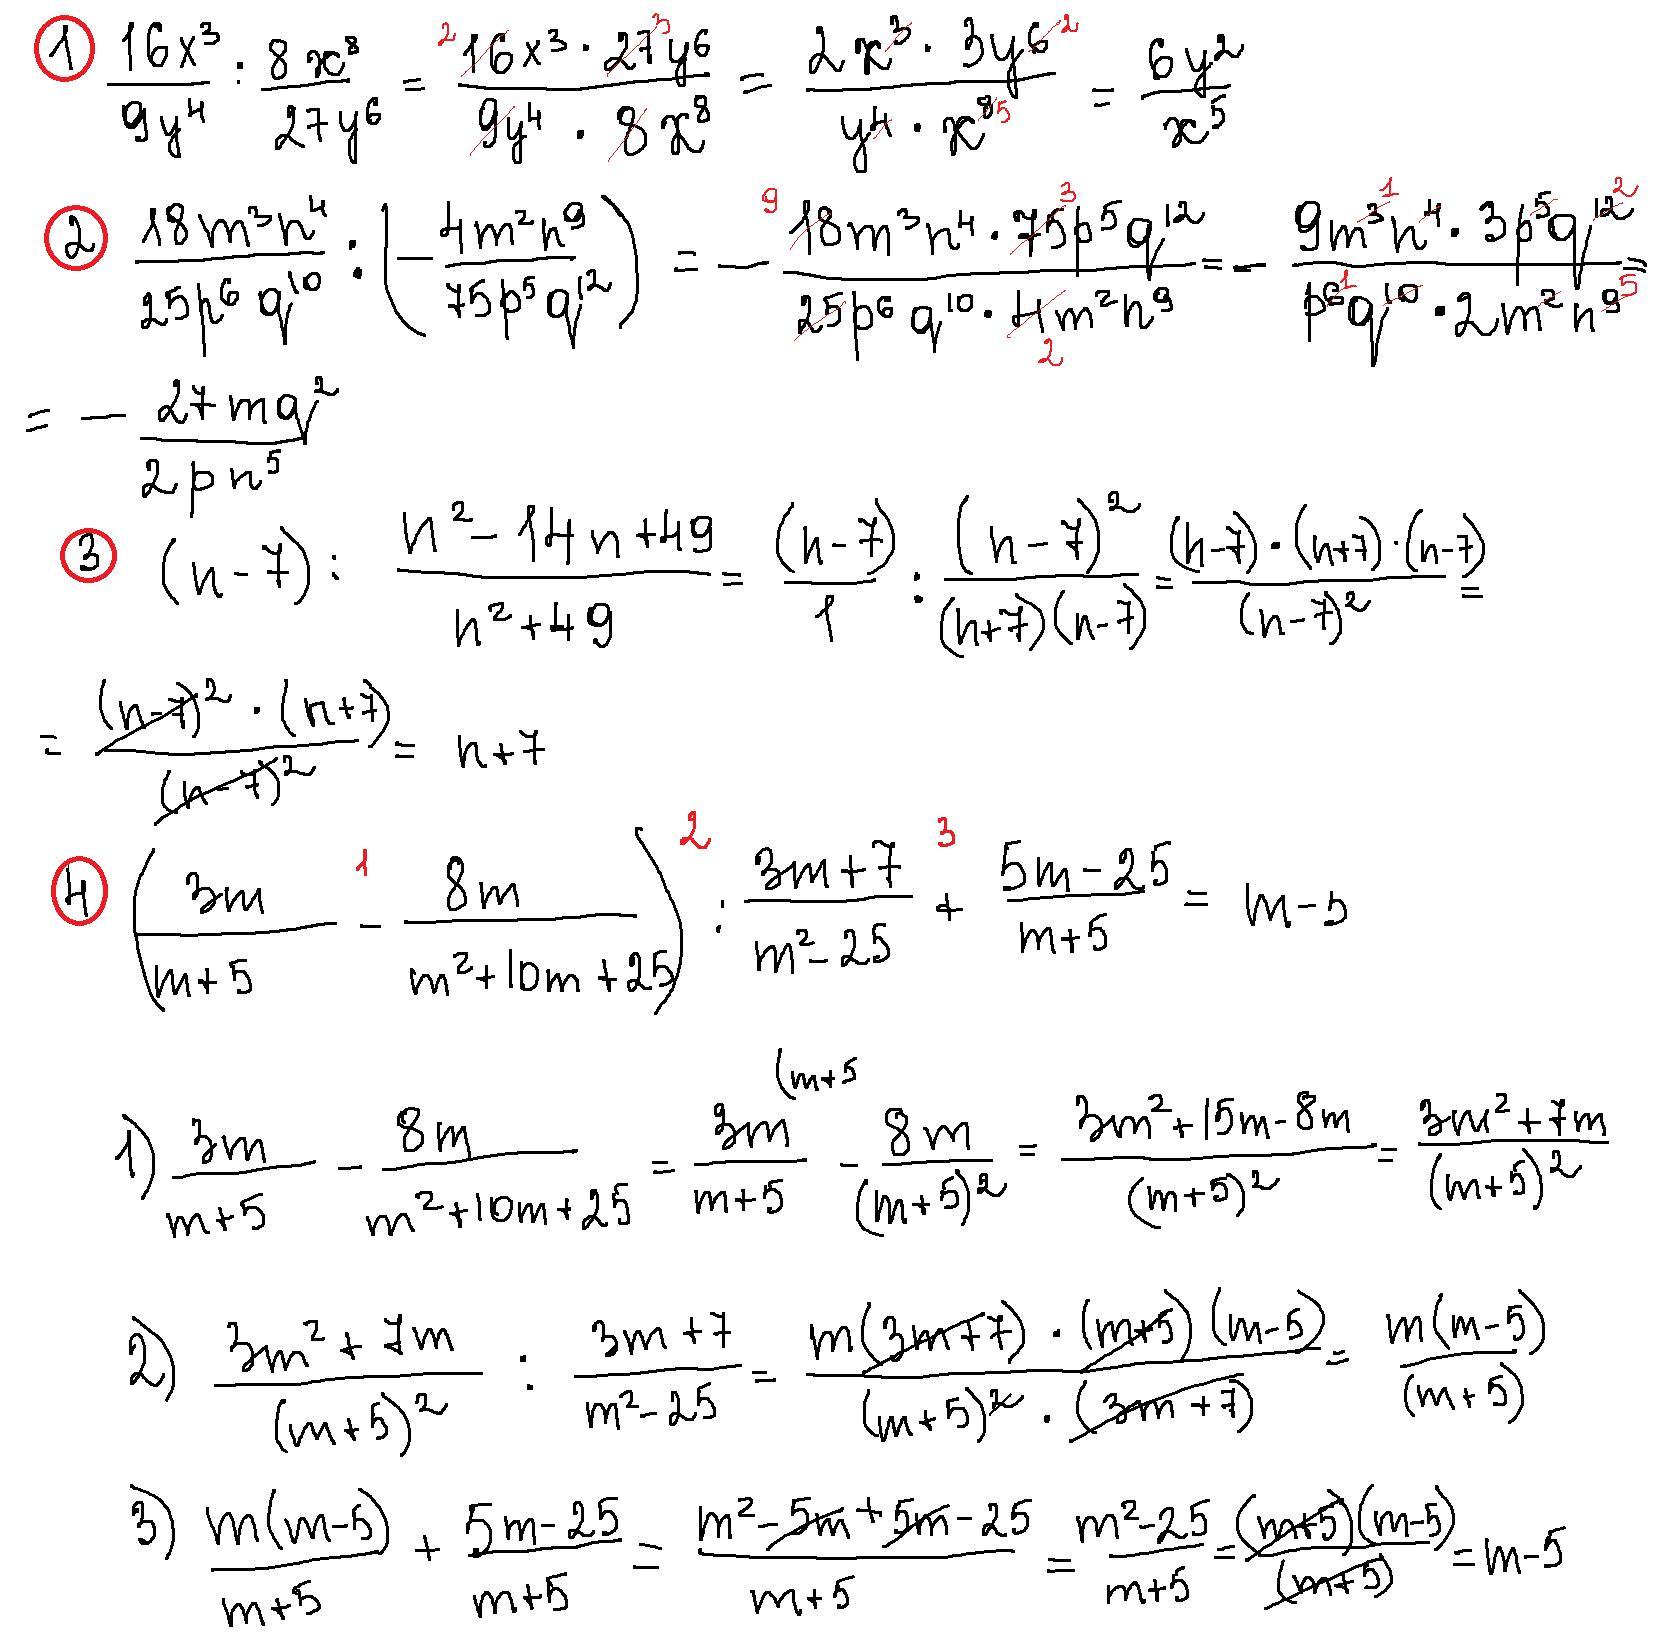 ① 16x³/9y⁴ : 8x⁸/27y⁶ = 2 16x³ · 27 3 y⁶/9y⁴ · 8x⁸ = 2x³ · 3y⁶ 2/y⁴ · x⁸ 5 = 6y²/x⁵
② 18m³n⁴/25p⁶q¹⁰ : (- 4m²n⁹/75p⁵q¹²) = - 9 18m³n⁴ · 75 3 p⁵q¹²/25p⁶q¹⁰ · 4 2 m²n⁹ = - 9m³ 1 n⁴ · 3p⁵q¹² 2/p⁶ 1 q¹⁰ · 2m²n⁹ 5 =
= - 27mq²/2pn⁵
③ (n-7) : n²-14n+49/n²+49 = (n-7)/1 : (n-7)²/(n+7)(n-7) = (n-7)·(n+7)·(n-7)/(n-7)² =
= (n-7)² · (n+7)/(n-7)² = n+7
④ (3m/m+5 1 - 8m/m²+10m+25) 2 : 3m+7/m²-25 3 + 5m-25/m+5 = m-5
(m+5
1) 3m/m+5 - 8m/m²+10m+25 = 3m/m+5 - 8m/(m+5)² = 3m²+15m-8m/(m+5)² = 3m²+7m/(m+5)²
2) 3m²+7m/(m+5)² : 3m+7/m²-25 = m(3m+7)·(m+5)(m-5)/(m+5)²·(3m+7) = m(m-5)/(m+5)
3) m(m-5)/m+5 + 5m-25/m+5 = m²-5m+5m-25/m+5 = m²-25/m+5 = (m+5)(m-5)/(m+5) = m-5